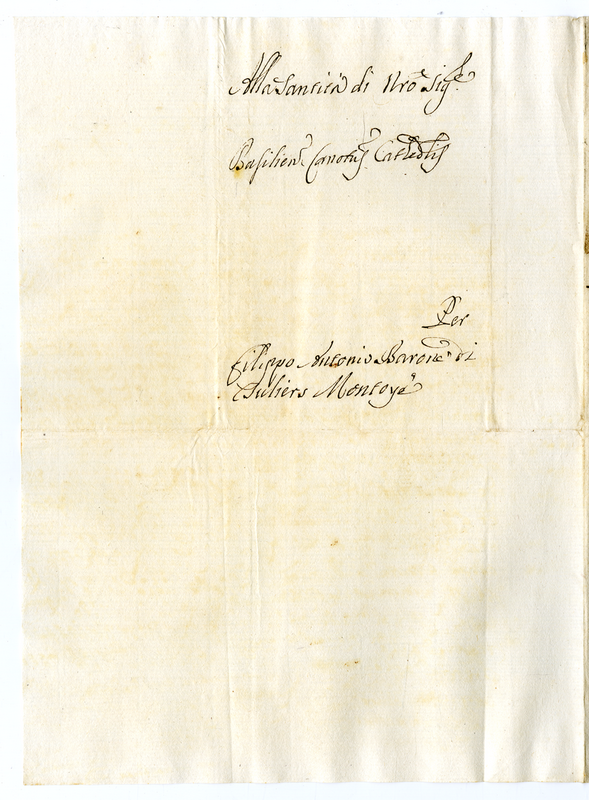 Alla Santità di Nro Sig.re
Basilien. Canotus Cathedlis
Per
Filippo Antonio Barone di
Juliers Montoye